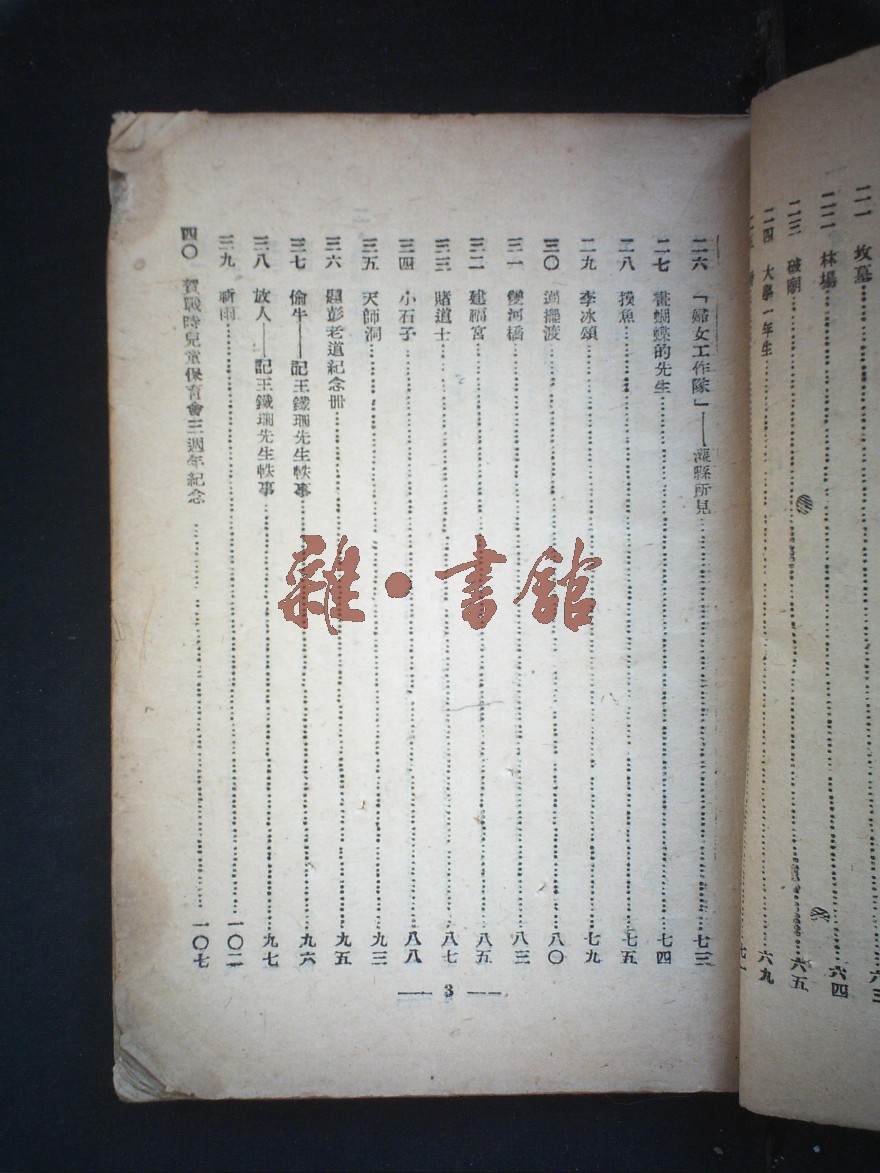 二一 坟墓 六三
二二 林場 六四
二三 破廟 六五
二四 大學一年生 六九
二五 七一
二六 「婦女工作隊」——灌縣所見 七三
二七 畫蝴蝶的先生 七四
二八 摸魚 七五
二九 李冰頌 七九
三〇 過擺渡 八〇
三一 雙河橋 八三
三二 建福宮 八五
三三 賭道士 八七
三四 小石子 八八
三五 天師洞 九三
三六 題彭老道紀念册 九五
三七 偷牛——記王鐵珊先生軼事 九六
三八 放人——記王鐵珊先生軼事 九七
三九 祈雨 一〇二
四〇 賀戰時兒童保育會三週年紀念 一〇七
— 3 —
雜·書館